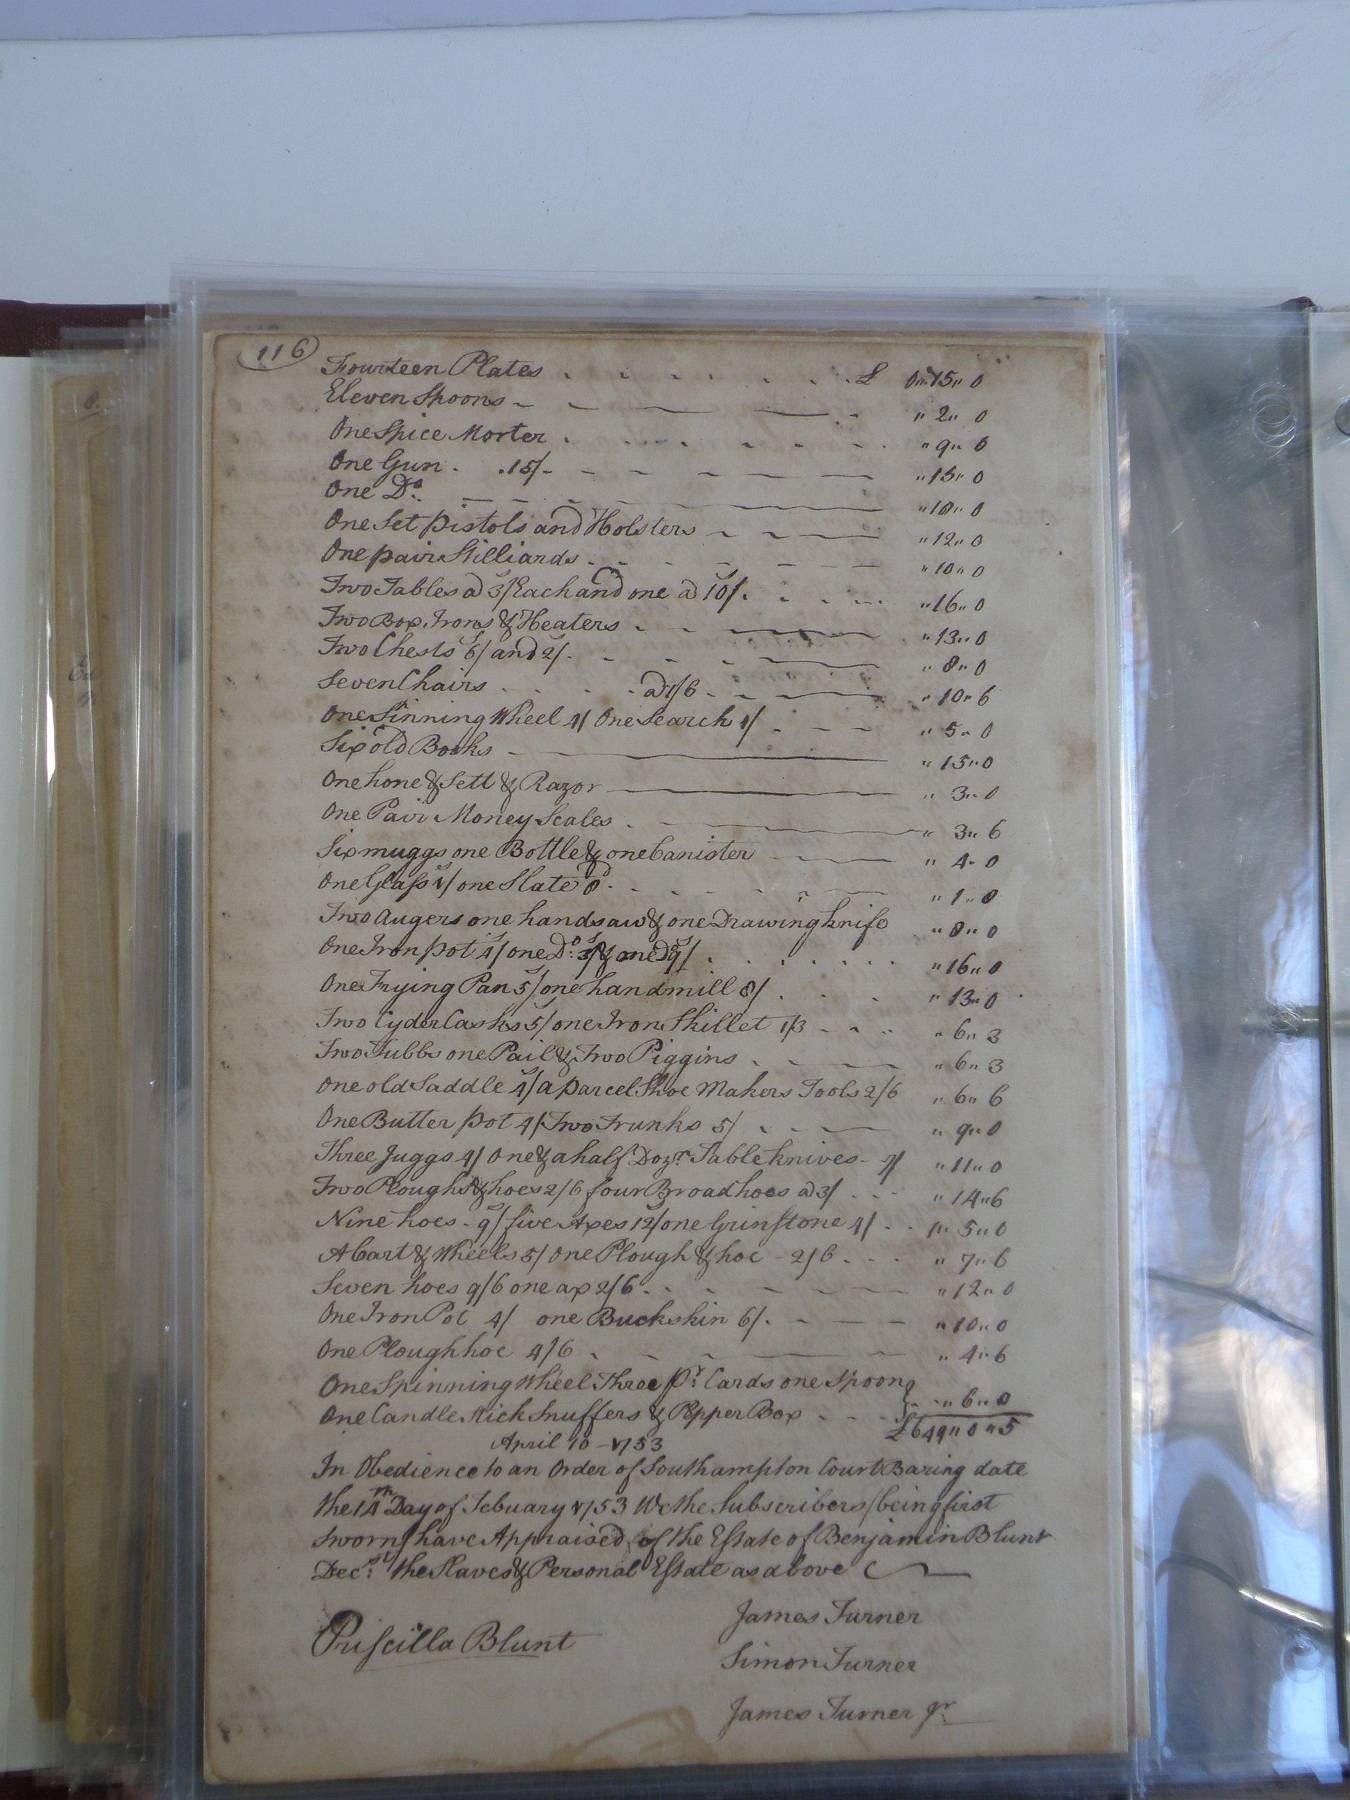 116
Fourteen Plates . - - . - . - . £ 0„15„0
Eleven Spoons - - — — - „ 2„ 0
One Spice Morter . . . . - . - - . „ 9„ 0
One Gun . . 15/- - - — — „15„ 0
One Do. — — — — „10„ 0
One Set pistols and Holsters - — — „12„ 0
One pair Stilliards . . - - — — „10„ 0
Two Tables a 3/ Each and one a 10/. . . . . „16„ 0
Two Box Irons & Heaters . - — — „13„ 0
Two Chests 6/ and 2/. - - - — „ 8„ 0
Seven Chairs . . . . . a 1/6 . - — „ 10„ 6
One Sinning Wheel 4/ One Search 1/ . - — „ 5„ 0
Six old Books - — „ 15„0
One hone & Sett & Razor — „ 3„ 0
One Pair Money Scales . — „ 3„ 6
Six muggs one Bottle & one Canister — — „ 4„ 0
One Glass 1/ one Slate 8d. - - - - — „ 1„ 8
Two Augers one handsaw & one Drawing knife „ 8„ 0
One Iron pot 4/ one Do. 3/ & one Do 9/ . . . . . . . „16„0
One Frying Pan 5/ one handmill 8/ . . . „ 13„0
Two Cyder Casks 5/ one Iron Skillet 1/3 - - - „ 6„ 3
Two Tubbs one Pail & Two Piggins . - — „ 6„ 3
One old Saddle 4/ a parcel Shoe Makers Tools 2/6 „ 6„ 6
One Butter pot 4/ Two Trunks 5/ . - — „ 9„0
Three Juggs 4/ One & a half Dozr. Table knives - 7/ „ 11„0
Two Ploughs & hoes 2/6 four Broad hoes a 3/ . . . „ 14„6
Nine hoes - 9/ five Axes 12/ one Grinstone 4/ . . 1„ 5„0
A Cart & Wheels 5/ One Plough & hoe - 2/6 . . . „ 7„ 6
Seven hoes 9/6 one ax 2/6 . . - - — „12„ 0
One Iron Pot 4/ one Buckskin 6/. - — — „ 10„ 0
One Plough hoe 4/6 . - - — — „ 4„ 6
One Spinning Wheel Three pr. Cards one Spoon
One Candle Stick Snuffers & Pepper Box . - - } . . „ 6„ 0
£649„0„5
April 10 - 1753
In Obedience to an Order of Southampton Court Baring date
the 14th Day of Febuary 1753 We the Subscribers (being first
Sworn) have Appraised of the Estate of Benjamin Blunt
Decd. the Slaves & Personal Estate as above
James Turner
Priscilla Blunt
Simon Turner
James Turner Jr.